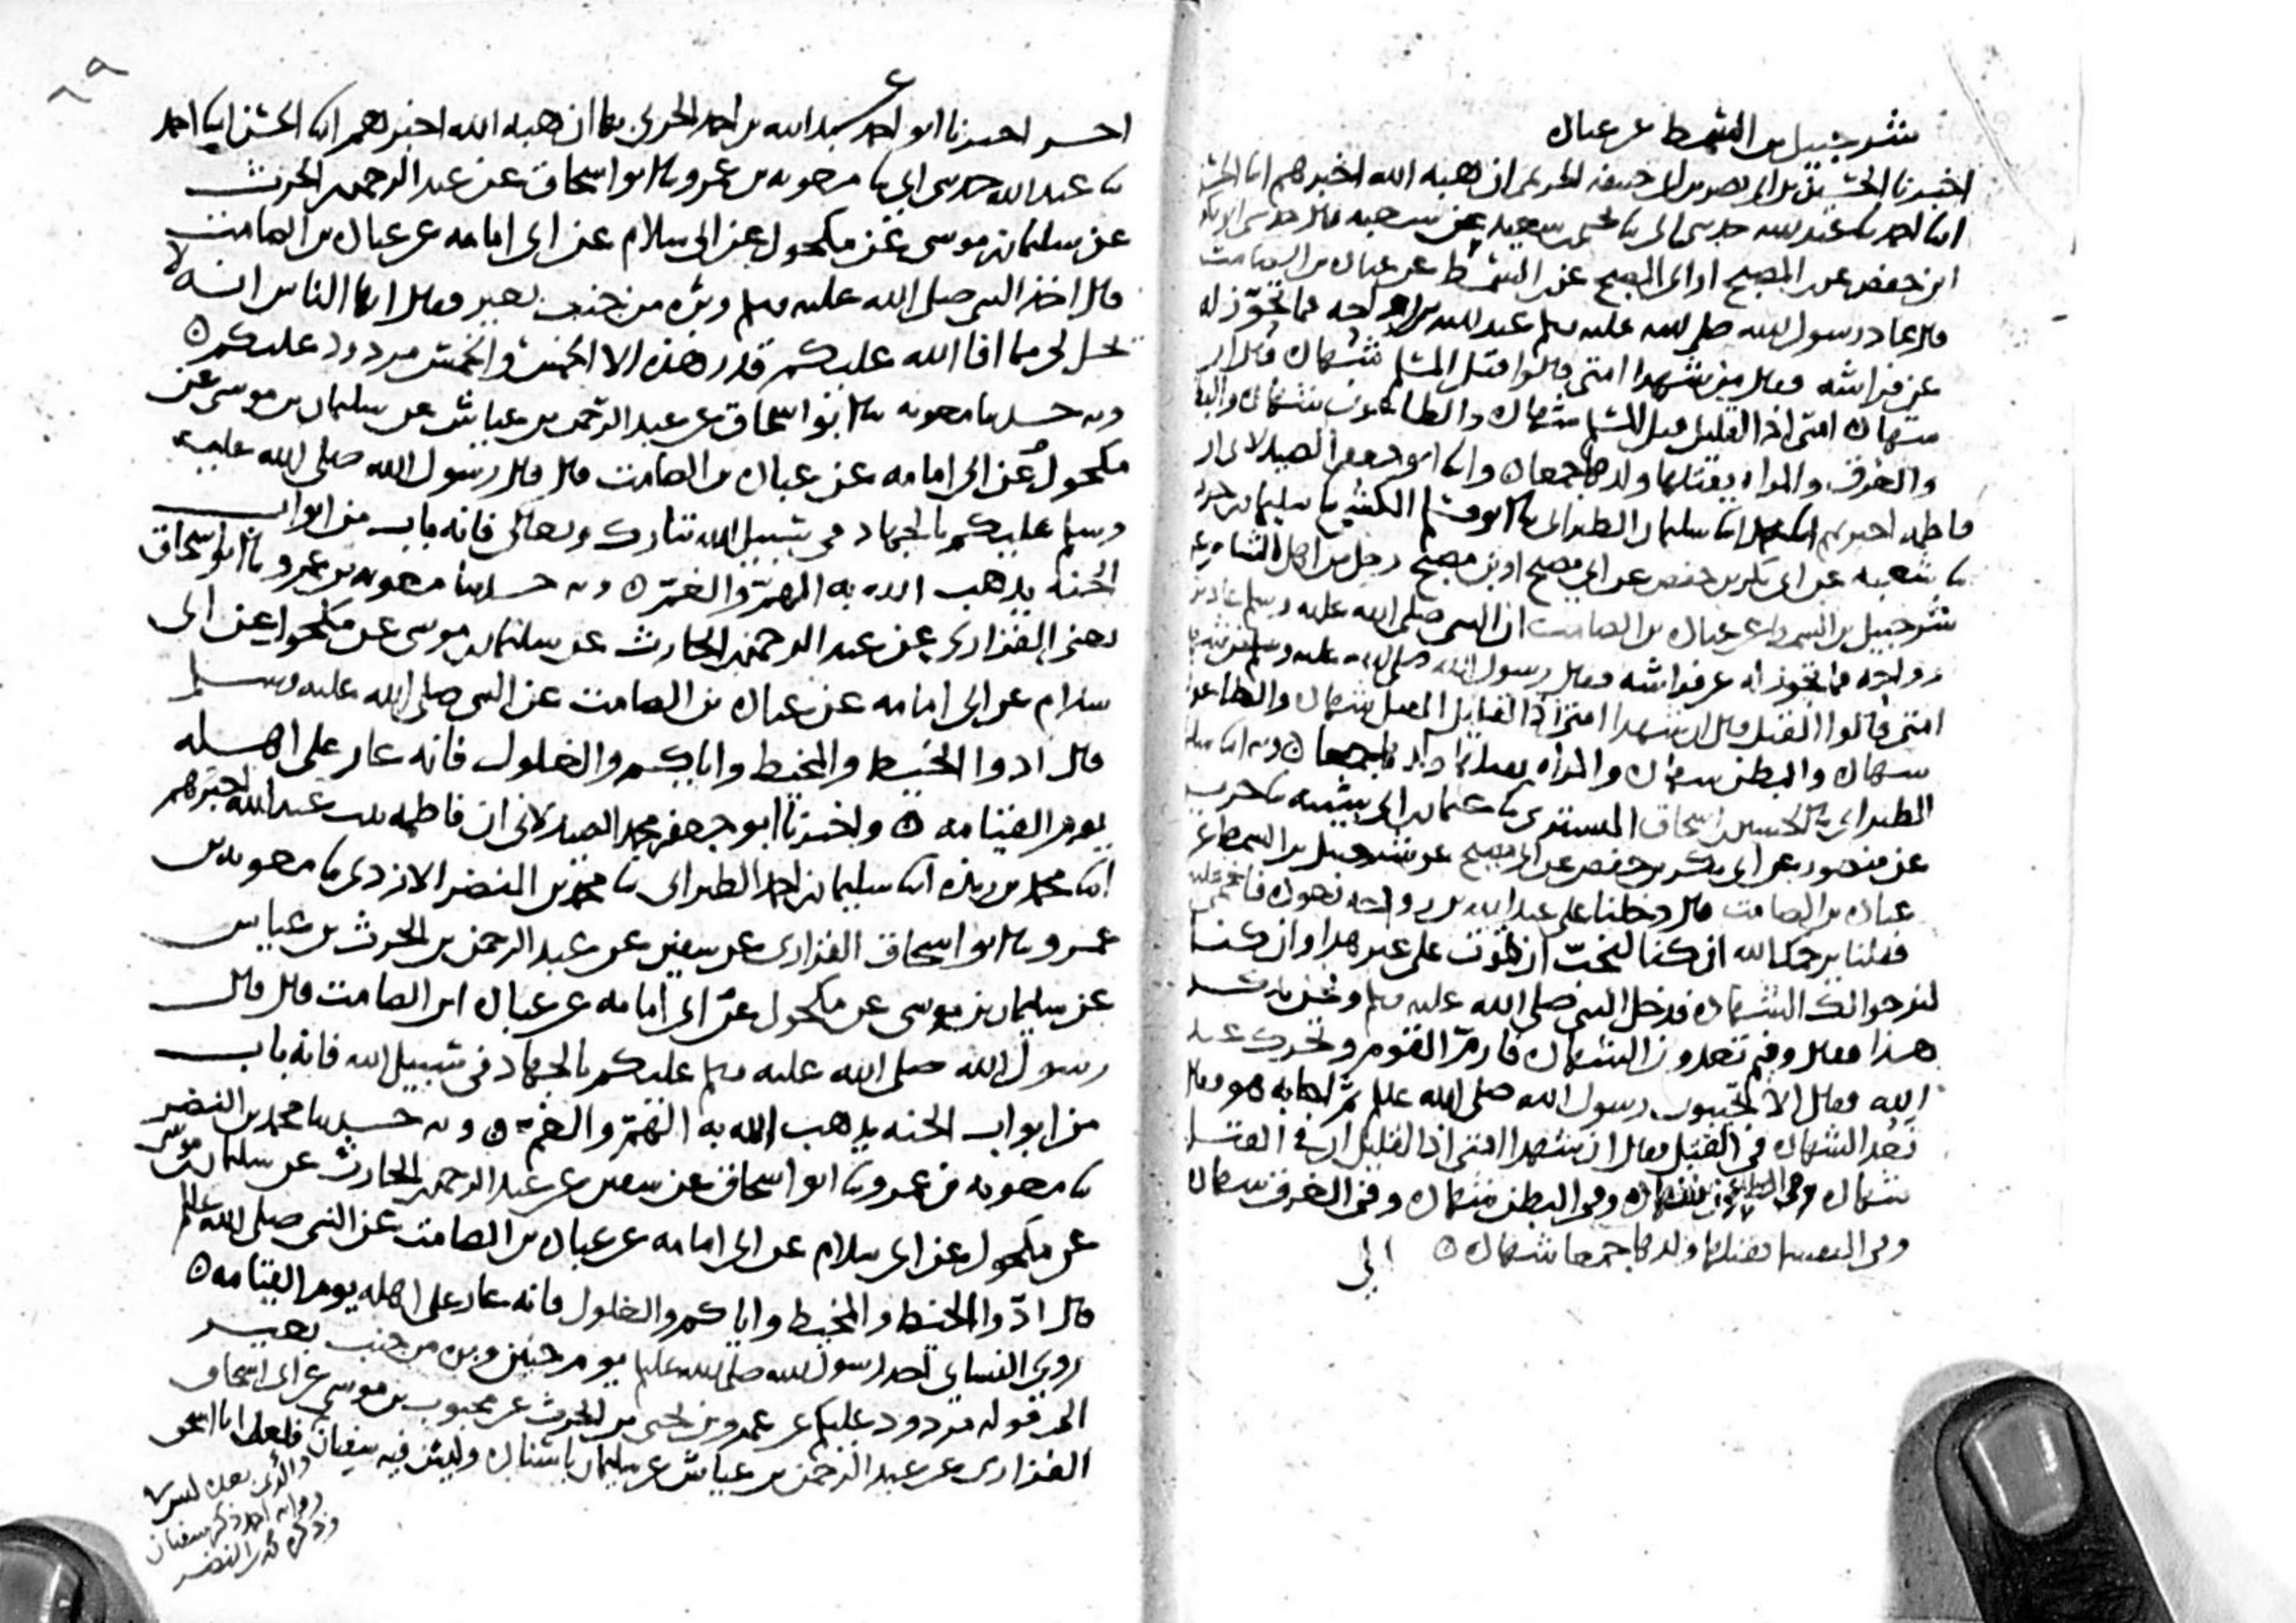 شرحبيل بن السمط عن عبادة
اخبرنا الحسين بن ابي نصر بن ابي حنيفة الحربي ان هبة الله اخبرهم انا الحسن
انا احمد نا عبد الله حدثني ابي نا محمد سعيد عن شعبة قال حدثني ابو بكر
ابن حفص عن المصبح او ابي المصبح عن السمط عن عبادة بن الصامت
قال عاد رسول الله صلى الله عليه وسلم عبد الله بن رواحة فما تحوز له
عن فراشه فقال من شهدا امتي قالوا قتل المسلم شهادة قال ان
شهدا امتي اذا لقليل قتل المسلم شهادة والطاعون شهادة والبطن
والغرق والمراة يقتلها ولدها جمعا ٥ وانا ابو جعفر الصيدلاني ان
فاطمة اخبرتهم انا سليمان الطبراني نا ابو مسلم الكشي نا سليمان بن حرب
نا شعبة عن ابي بكر بن حفص عن ابي مصبح او ابن مصبح رجل من اهل الشام عن
شرحبيل بن السمط عن عبادة بن الصامت ان النبي صلى الله عليه وسلم عاد بن
رواحة فما تحوز له عن فراشه فقال رسول الله صلى الله عليه وسلم من شهدا
امتي قالوا القتل قال ان شهدا امتي اذا لقليل القتل شهادة والطاعون
شهادة والبطن شهادة والمراة يقتلها ولدها جمعا ٥ وبه انا سليمن
الطبراني نا الحسين بن اسحاق التستري نا عثمان بن ابي شيبة نا جرير
عن منصور عن ابي بكر بن حفص عن ابي مصبح عن شرحبيل بن السمط عن
عبادة بن الصامت قال دخلنا على عبد الله بن رواحة نعوده فاغمي عليه
فقلنا يرحمك الله ان كنا لنحب ان تموت على غير هذا وان كنا
لنرجو لك الشهادة فدخل النبي صلى الله عليه وسلم ونحن نذكر
هذا فقال وفيم تعدون الشهادة فارم القوم وتحرك عبد
الله فقال الا تجيبون رسول الله صلى الله عليه وسلم ثم اجابه هو فقال
نعد الشهادة في القتل فقال ان شهدا امتي اذا لقليل ان في القتل
شهادة وفي الطاعون شهادة وفي البطن شهادة وفي الغرق شهادة
وفي النفسا يقتلها ولدها جمعا شهادة ٥
ابي
٦٩
اخر اخبرنا ابو احمد عبد الله بن احمد الحربي بها ان هبة الله اخبرهم انا الحسن انا احمد
نا عبد الله حدثني ابي نا معوية بن عمرو نا ابو اسحاق عن عبد الرحمن بن الحرث
عن سليمان بن موسى عن مكحول عن ابي سلام عن ابي امامة عن عبادة بن الصامت
قال اخذ النبي صلى الله عليه وسلم وبرة من جنب بعير فقال ايها الناس انه لا
يحل لي مما افا الله عليكم قدر هذه الا الخمس والخمس مردود عليكم ٥
وبه حدثنا معوية نا ابو اسحاق عن عبد الرحمن بن عياش عن سليمان بن موسى عن
مكحول عن ابي امامة عن عبادة بن الصامت قال قال رسول الله صلى الله عليه
وسلم عليكم بالجهاد في سبيل الله تبارك وتعالى فانه باب من ابواب
الجنة يذهب الله به الهم والغم ٥ وبه حدثنا معوية بن عمرو نا ابو اسحاق
يعني الفزاري عن عبد الرحمن بن الحارث عن سليمان بن موسى عن مكحول عن ابي
سلام عن ابي امامة عن عبادة بن الصامت عن النبي صلى الله عليه وسلم
قال ادوا الخيط والمخيط واياكم والغلول فانه عار على اهله
يوم القيامة ٥ واخبرنا ابو جعفر محمد الصيدلاني ان فاطمة بنت عبد الله اخبرتهم
انا محمد بن ريذة انا سليمان بن احمد الطبراني نا محمد بن النضر الازدي نا معوية بن
عمرو نا ابو اسحاق الفزاري عن سفين عن عبد الرحمن بن الحرث بن عياش
عن سليمان بن موسى عن مكحول عن ابي امامة عن عبادة ابن الصامت قال قال
رسول الله صلى الله عليه وسلم عليكم بالجهاد في سبيل الله فانه باب
من ابواب الجنة يذهب الله به الهم والغم ٥ وبه حدثنا محمد بن النضر
نا معوية بن عمرو نا ابو اسحاق عن سفين عن عبد الرحمن بن الحارث عن سليمان بن موسى
عن مكحول عن ابي سلام عن ابي امامة عن عبادة بن الصامت عن النبي صلى الله عليه
قال ادوا الخيط والمخيط واياكم والغلول فانه عار على اهله يوم القيامة ٥
روى النساي اخذ رسول الله صلى الله عليه وسلم يوم حنين وبرة من جنب بعير
الى قوله مردود عليكم عن عمرو بن يحيى بن الحرث عن محبوب بن موسى عن ابي اسحاق
الفزاري عن عبد الرحمن بن عياش عن سليمان باسناده وليس فيه سفيان فلعل ابا اسحق
والذي بعده ليس
رواية احمد ذكر سفيان
وذكره محمد بن النضر